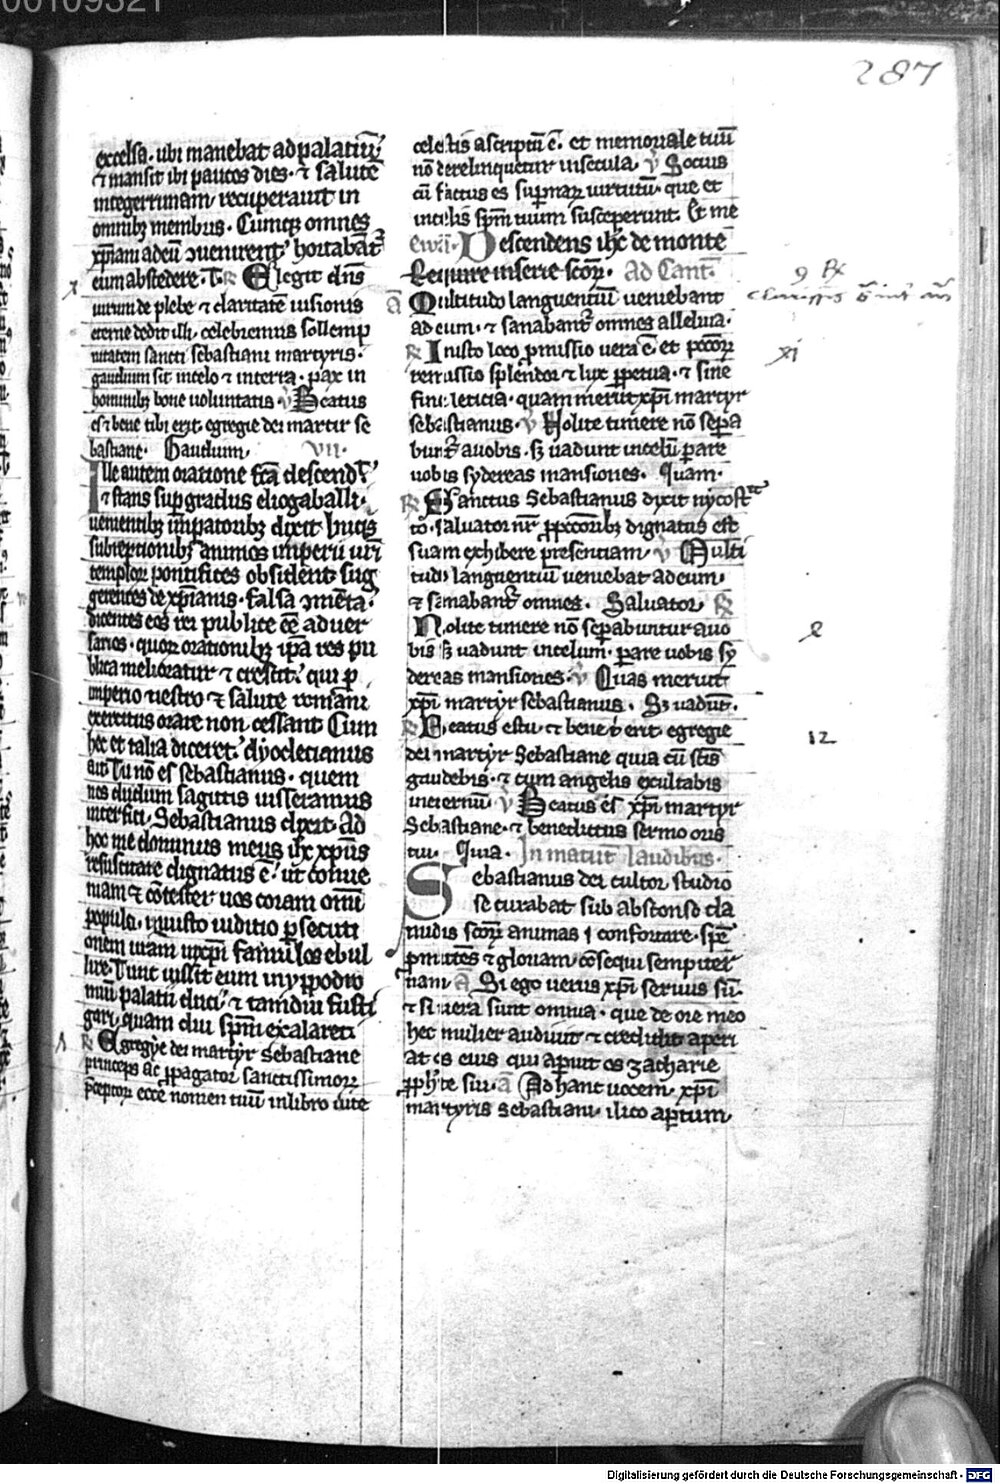 00109321
287
excelsa · ubi manebat ad palatiū
⁊ mansit ibi paucos dies · ⁊ salutē
integerrimam recuperavit in
omnibꝫ membris · Cumqꝫ omnes
xp̄iani ad eū ꝯvenirent hortabāt᷑
eum abscedere · T · ℟ Elegit dn̄s
virum de plebe ⁊ claritatē visionis
eterne dedit illi · celebremus sollemp
nitatem sancti sebastiani martyris ·
gaudium sit in celo ⁊ in terra · pax in
hominibꝫ bone voluntatis · ℣ Beatus
es ⁊ bene tibi erit egregie dei martir se
bastiane · Gaudium · VII ·
Ille autem oratione fc̄a descend᷑
⁊ stans sup gradus eliogaballi ·
venientibꝫ īmpatoribꝫ dixit Iniqꝫ
subreptionibꝫ animos imperii vr̄i
temploꝝ pontifices obsident sug
gerentes de xp̄ianis · falsa ꝯmēta ·
dicentes eos rei publice ēē adver
sarios · quoꝝ orationibꝫ ip̄a res pu
blica melioratur ⁊ crescit · qui ꝓ
imperio vestro ⁊ salute romani
exercitus orare non cessant Cum
hec et talia diceret · dyoclecianus
ait Tu nō es sebastianus · quem
nos dudum sagittis iusseramus
interfici · Sebastianus dixit · Ad
hoc me dominus meus ih̄c xp̄us
resuscitare dignatus ē · ut conve
niam ⁊ cōtester vos coram omī
populo · iniusto iuditio ꝑsecuti
onem vram in xp̄i famulos ebul
lire · Tunc iussit eum in yppodro
miū palatii duci · ⁊ tamdiu fusti
gari quam diu spm̄ exalaret
℟ Egregie dei martyr Sebastiane
princeps ac ꝓpagator sanctissimoꝝ
p̄ceptoꝝ ecce nomen tuū in libro vite
celestis ascriptū ē · et memoriale tuū
nō derelinquetur in secula · ℣ Socius
cū factus es supernaꝝ virtutū · que et
spm̄ tuum susceperunt · Et me
Ewā · Descendens ih̄c de monte
Require in serie sc̄oꝝ · Ad Cant᷑
ā Multitudo languentiū veniebant
ad eum · ⁊ sanabant᷑ omnes alleluia ·
℟ In isto loco ꝓmissio vera ē · et pc̄c̄oꝝ
remissio splendor ⁊ lux ꝑpetua · ⁊ sine
fine leticia · quam meruit xp̄i martyr
sebastianus · ℣ Nolite timere nō sepa
bunt᷑ a vobis · sꝫ vadunt in celū parare
vobis sydereas mansiones · Quam ·
℟ Sanctus Sebastianus dixit nycostra
to · salvator nr̄ ꝓ pc̄c̄oribꝫ dignatus est
suam exhibere presentiam · ℣ Multi
tudo languentiū veniebat ad eum ·
⁊ sanabant᷑ omnes · Salvator ℟
Nolite timere nō sepabuntur a vo
bis sꝫ vadunt in celum · parare vobis sy
dereas mansiones · ℣ Quas meruit
xp̄i martyr sebastianus · Sꝫ vadūt ·
℟ Beatus es tu · ⁊ bene t̄ erit egregie
dei martyr Sebastiane quia cū sc̄is
gaudebis · ⁊ cum angelis exultabis
in eternū · ℣ Beatus es xp̄i martyr
Sebastiane · ⁊ benedictus sermo oris
tui · Quia · In matut᷑ laudibus ·
Sebastianus dei cultor studio
se curabat sub absconso cla
midis sc̄oꝝ animas ⁊ confortare · spē
ꝓmittēs ⁊ gloriam cōsequi sempiter
nam · ā Si ego verus xp̄i servus sū ·
⁊ si vera sunt omnia · que de ore meo
hec mulier audivit ⁊ credidit aperi
at os eius qui aperuit os zacharie
ꝓphete sui · ā Ad hanc vocem xp̄i
martyris sebastiani · ilico apertum
x
9 ℟
xi
12
Digitalisierung gefördert durch die Deutsche Forschungsgemeinschaft - DFG